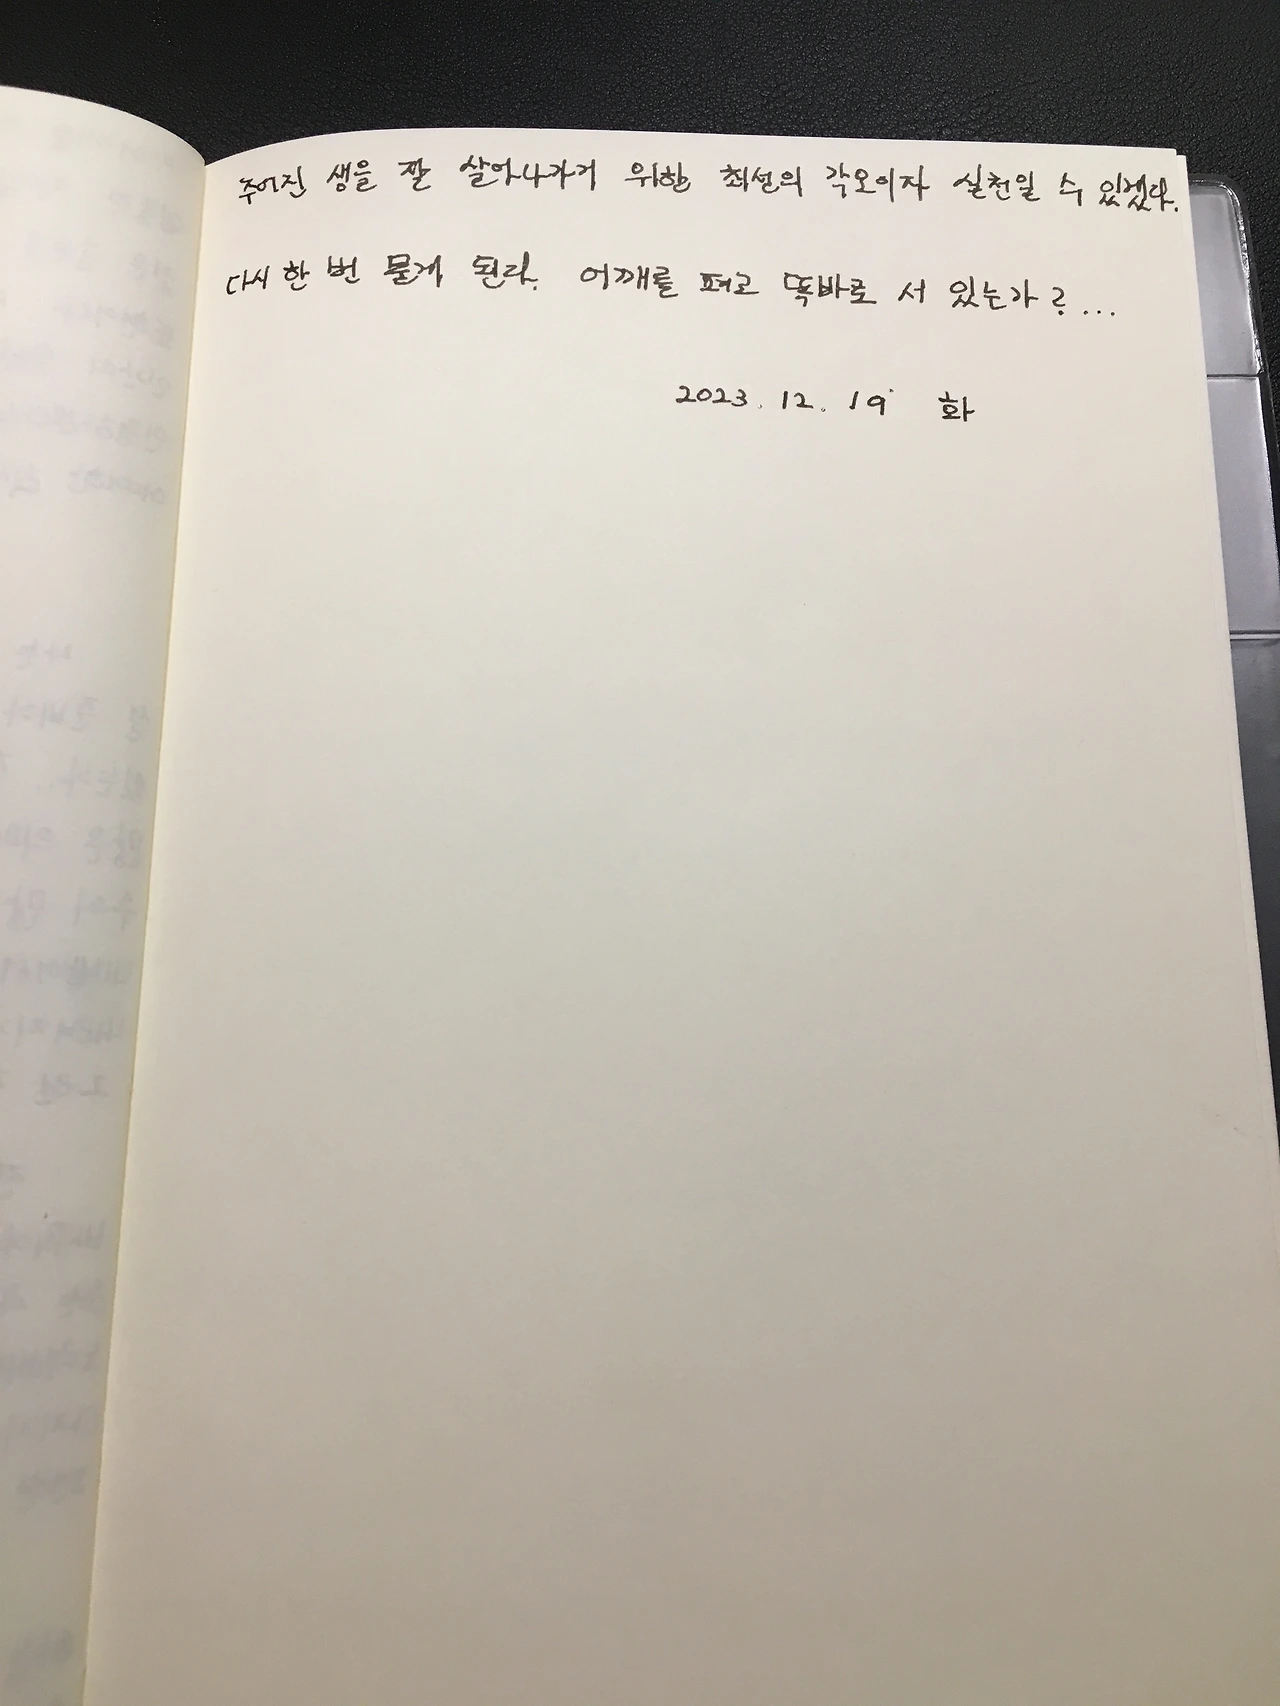 주어진 생을 잘 살아나가기 위한 최선의 각오이자 실천일 수 있겠다.
다시 한 번 묻게 된다. 어깨를 펴고 똑바로 서 있는가?...
2023. 12. 19 화